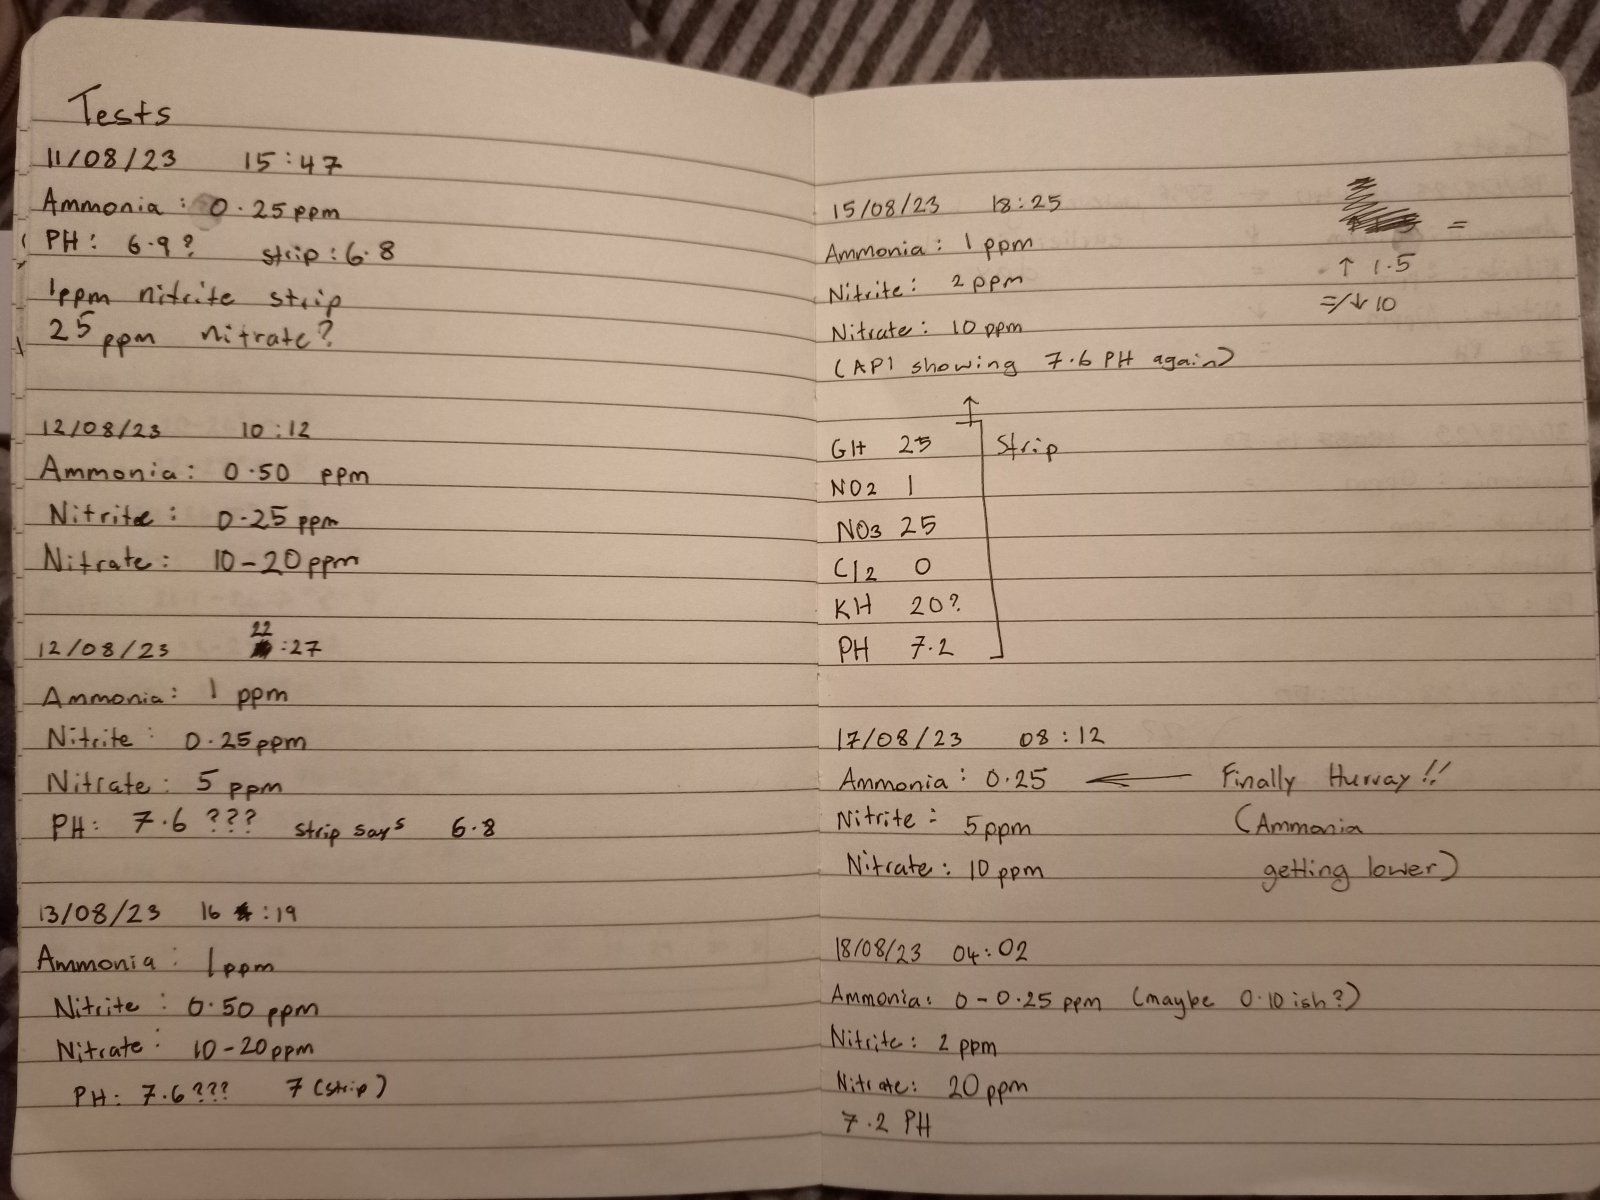 Tests
11/08/23 15:47
Ammonia: 0.25ppm
PH: 6.9? strip: 6.8
1ppm nitrite strip
25ppm nitrate?
12/08/23 10:12
Ammonia: 0.50 ppm
Nitrite: 0.25ppm
Nitrate: 10-20ppm
12/08/23 22:27
Ammonia: 1 ppm
Nitrite: 0.25ppm
Nitrate: 5 ppm
PH: 7.6 ??? strip says 6.8
13/08/23 16:19
Ammonia: 1ppm
Nitrite: 0.50 ppm
Nitrate: 10-20ppm
PH: 7.6??? 7 (strip)
15/08/23 18:25
Ammonia: 1 ppm =
Nitrite: 2 ppm ↑ 1.5
Nitrate: 10 ppm =/↓ 10
(API showing 7.6 PH again)
↑
GH 25 Strip
NO2 1
NO3 25
Cl2 0
KH 20?
PH 7.2
17/08/23 08:12
Ammonia: 0.25 ← Finally Hurray!!
Nitrite: 5ppm (Ammonia
Nitrate: 10 ppm getting lower)
18/08/23 04:02
Ammonia: 0-0.25 ppm (maybe 0.10 ish?)
Nitrite: 2 ppm
Nitrate: 20ppm
7.2 PH